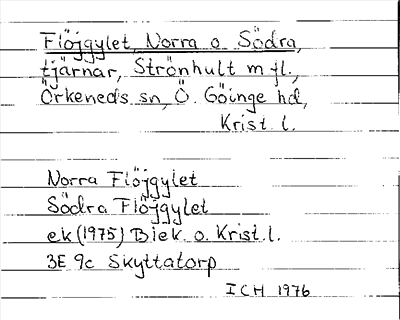 Flöjgylet, Norra o. Södra,
tjärnar, Strönhult m fl.,
Örkeneds sn, Ö. Göinge hd,
Krist. l.
Norra Flöjgylet
Södra Flöjgylet
ek (1975) Blek. o. Krist. l.
3E 9c Skyttatorp
ICH 1976